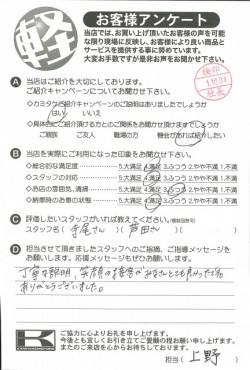 軽
お客様アンケート
当店では、お買い上げ頂いたお客様の声を可能
な限り現場に反映し、お客様により良い商品と
サービスを提供する事に努めています。
大変お手数ですが是非お声をお聞かせ下さい。
検印
社長
A 当店はご紹介を大切にしております。
ご紹介キャンペーンについてお聞かせ下さい。
◇カミタケご紹介キャンペーンのご説明はありましたでしょうか
はい いいえ
◇具体的にご紹介頂ける方とのご関係をお聞かせ頂けますでしょうか
ご親族 ご友人 職場の方 機会があれば紹介したい
B 当店を実際にご利用になった印象をお聞かせ下さい。
◇総合的な満足度 5.大満足 4.満足 3.ふつう 2.やや不満 1.不満
◇スタッフの対応 5.大満足 4.満足 3.ふつう 2.やや不満 1.不満
◇お店の雰囲気、清掃 5.大満足 4.満足 3.ふつう 2.やや不満 1.不満
◇納車時のお車の状態 5.大満足 4.満足 3.ふつう 2.やや不満 1.不満
C 評価したいスタッフがいれば教えてください。(複数回答可)
スタッフ名( 寺尾さん )( 芦田さん )
D 担当させて頂きましたスタッフへのご指摘、ご指導メッセージを
お願いします。応援メッセージもぜひお願いします。
丁寧な説明、笑顔の接客が
ありがとうございました。
K
ご協力に心よりお礼を申し上げます。
今後とも宜しくお引き立てご愛顧の程お願い申し上げます。
またのご来店を心からお待ちしております。
担当( 上野 )